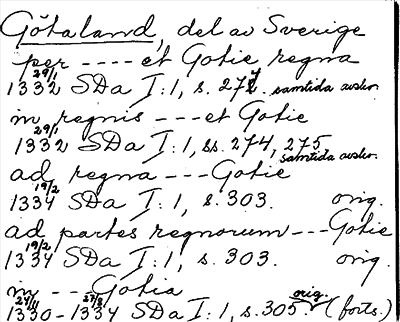 Götaland, del av Sverige
per ---- et Gotie regna
1332 29/1 SDa I:1, s. 277. samtida avskr.
in regnis --- et Gotie
1332 29/1 SDa I:1, ss. 274, 275 samtida avskr.
ad regna --- Gotie
1334 19/2 SDa I:1, s. 303. orig.
ad partes regnorum --- Gotie
1334 19/2 SDa I:1, s. 303. orig.
in --- Gotia
1330 - 1334 SDa I:1, s. 305. orig. (forts.)